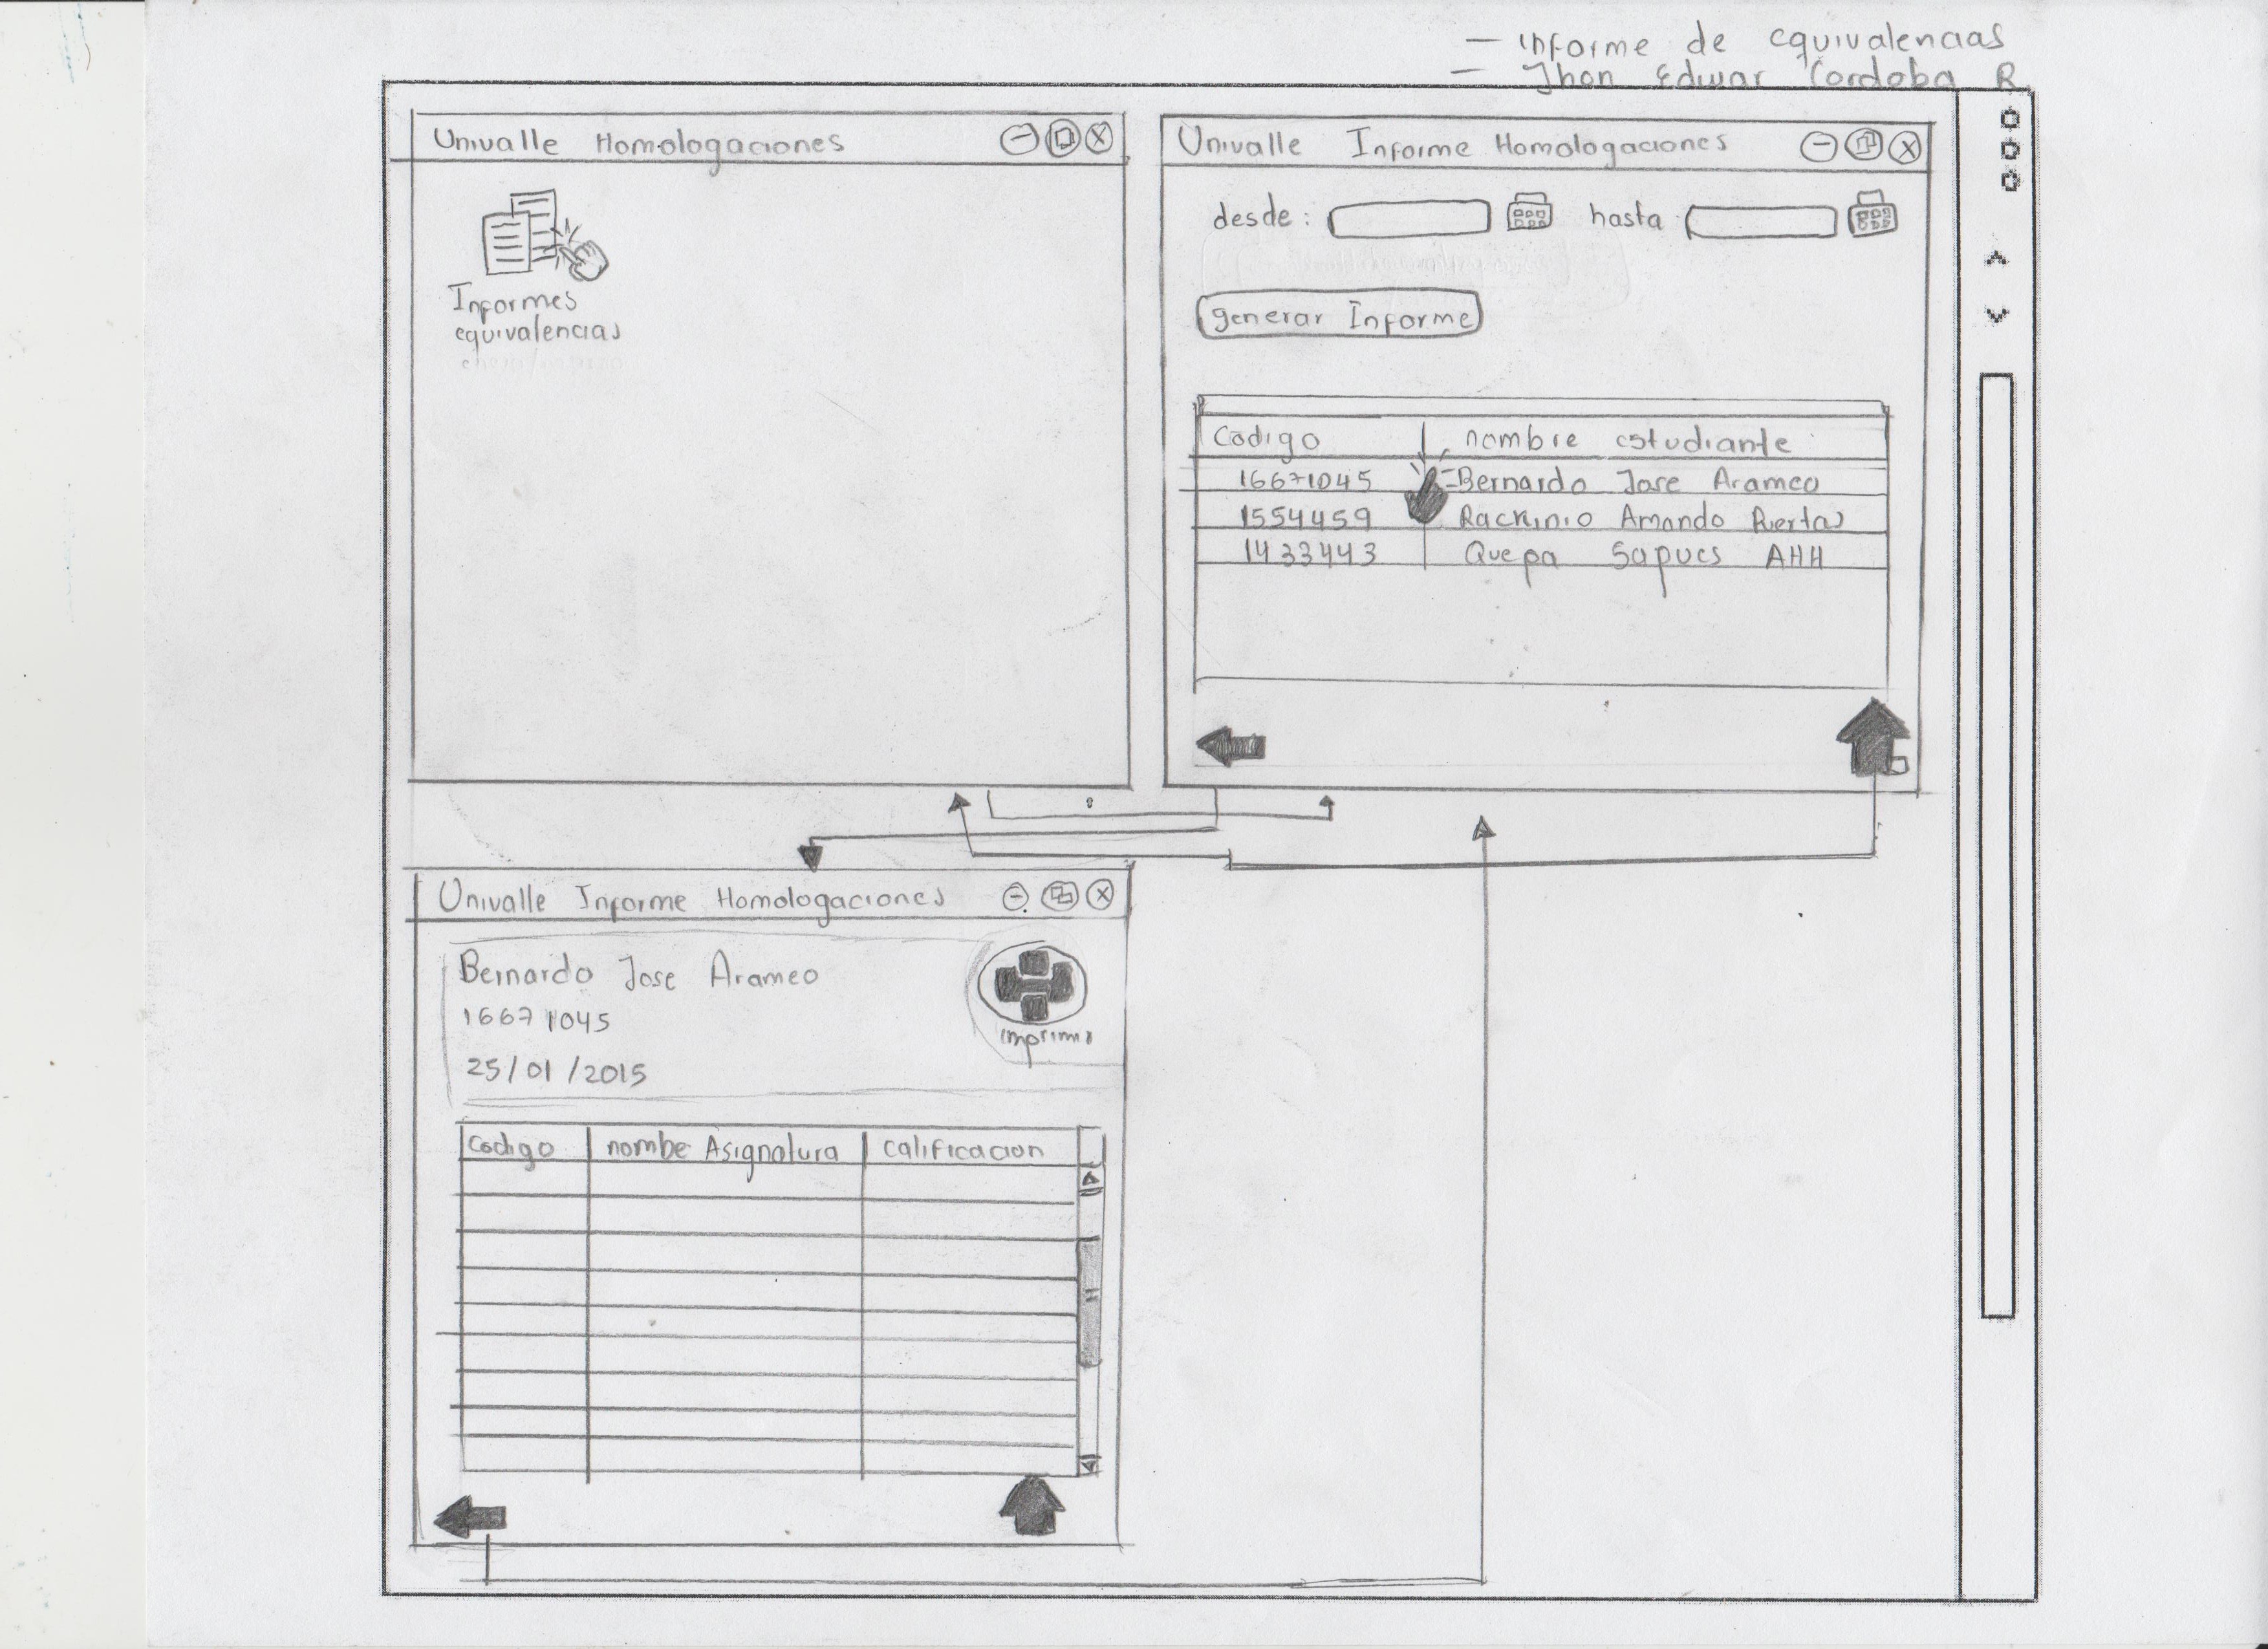 — informe de equivalencias
— Jhon Edwar Cordoba R.
Univalle Homologaciones
Informes
equivalencias
Univalle Informe Homologaciones
desde: hasta
generar Informe
Codigo nombre estudiante
16671045 Bernardo Jose Arameo
1554459 Amando
1433443 Quepa Sapucs AHH
Univalle Informe Homologaciones
Bernardo Jose Arameo
16671045
25/01/2015
imprimir
Codigo nombe Asignatura calificacion